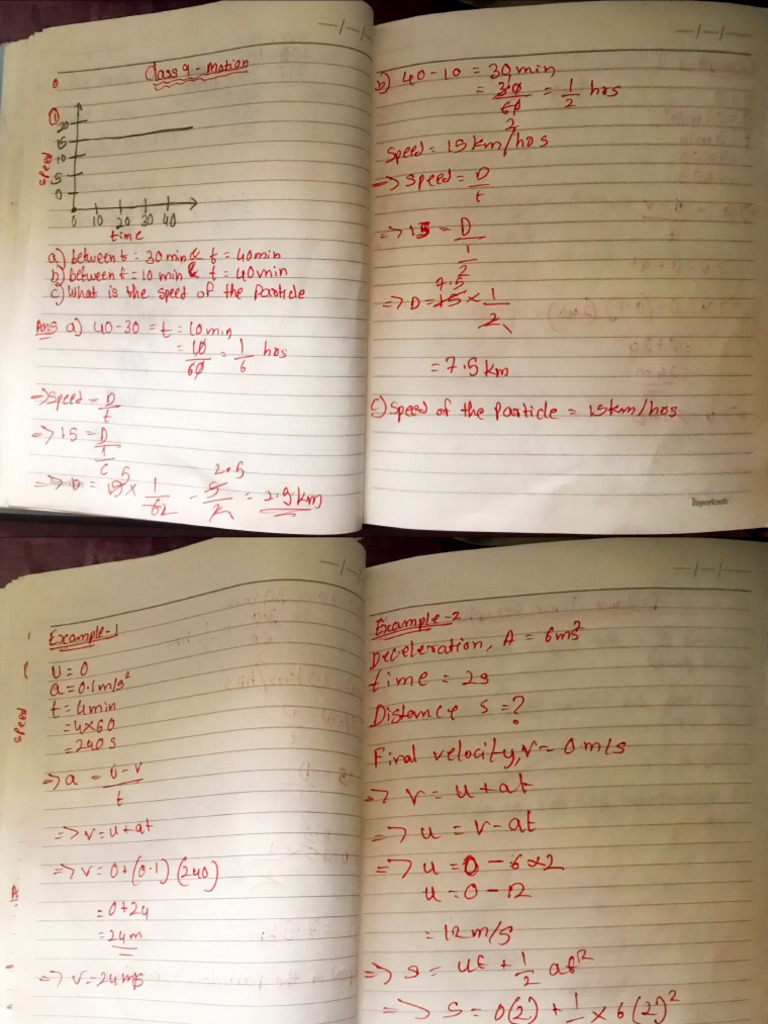 Class 9 - Motion
①
20
15
10
5
0
speed
0 10 20 30 40
time
a) between t = 30 min & t = 40 min
b) between t = 10 min & t = 40 min
c) What is the speed of the Particle
Ans a) 40-30 = t = 10 min
= 10/60 = 1/6 hrs
=> Speed = D/t
=> 15 = D/(1/6)
=> D = 15 × 1/62 - 5/2 = 2.5 km
5
2.5
b) 40-10 = 30 min
= 30/60 = 1/2 hrs
2
Speed = 15 km/hrs
=> Speed = D/t
=> 15 = D/(1/2)
7.5
=> D = 15 × 1/2
= 7.5 km
c) Speed of the Particle = 15km/hrs
Example-1
U = 0
a = 0.1 m/s²
t = 4 min
= 4×60
= 240 s
=> a = U-V/t
=> v = u + at
=> v = 0 + (0.1) (240)
= 0 + 24
= 24 m
=> v = 24 m/s
speed
A
Example-2
Deceleration, A = 6ms²
time = 2s
Distance s = ?
Final velocity, v = 0 m/s
=> v = u + at
=> u = v - at
=> u = 0 - 6×2
u = 0 - 12
= 12 m/s
=> s = ut + 1/2 at²
=> s = 0(2) + 1/ × 6 (2)²